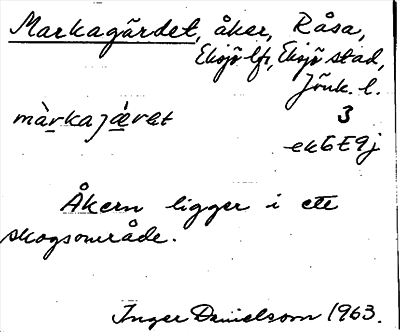 Markagärdet, åker, Råsa,
Eksjö lfs, Eksjö stad,
Jönk. l.
màrkajǽrət 3
ek 6E9j
Åkern ligger i ett
skogsområde.
Inger Danielsson 1963.